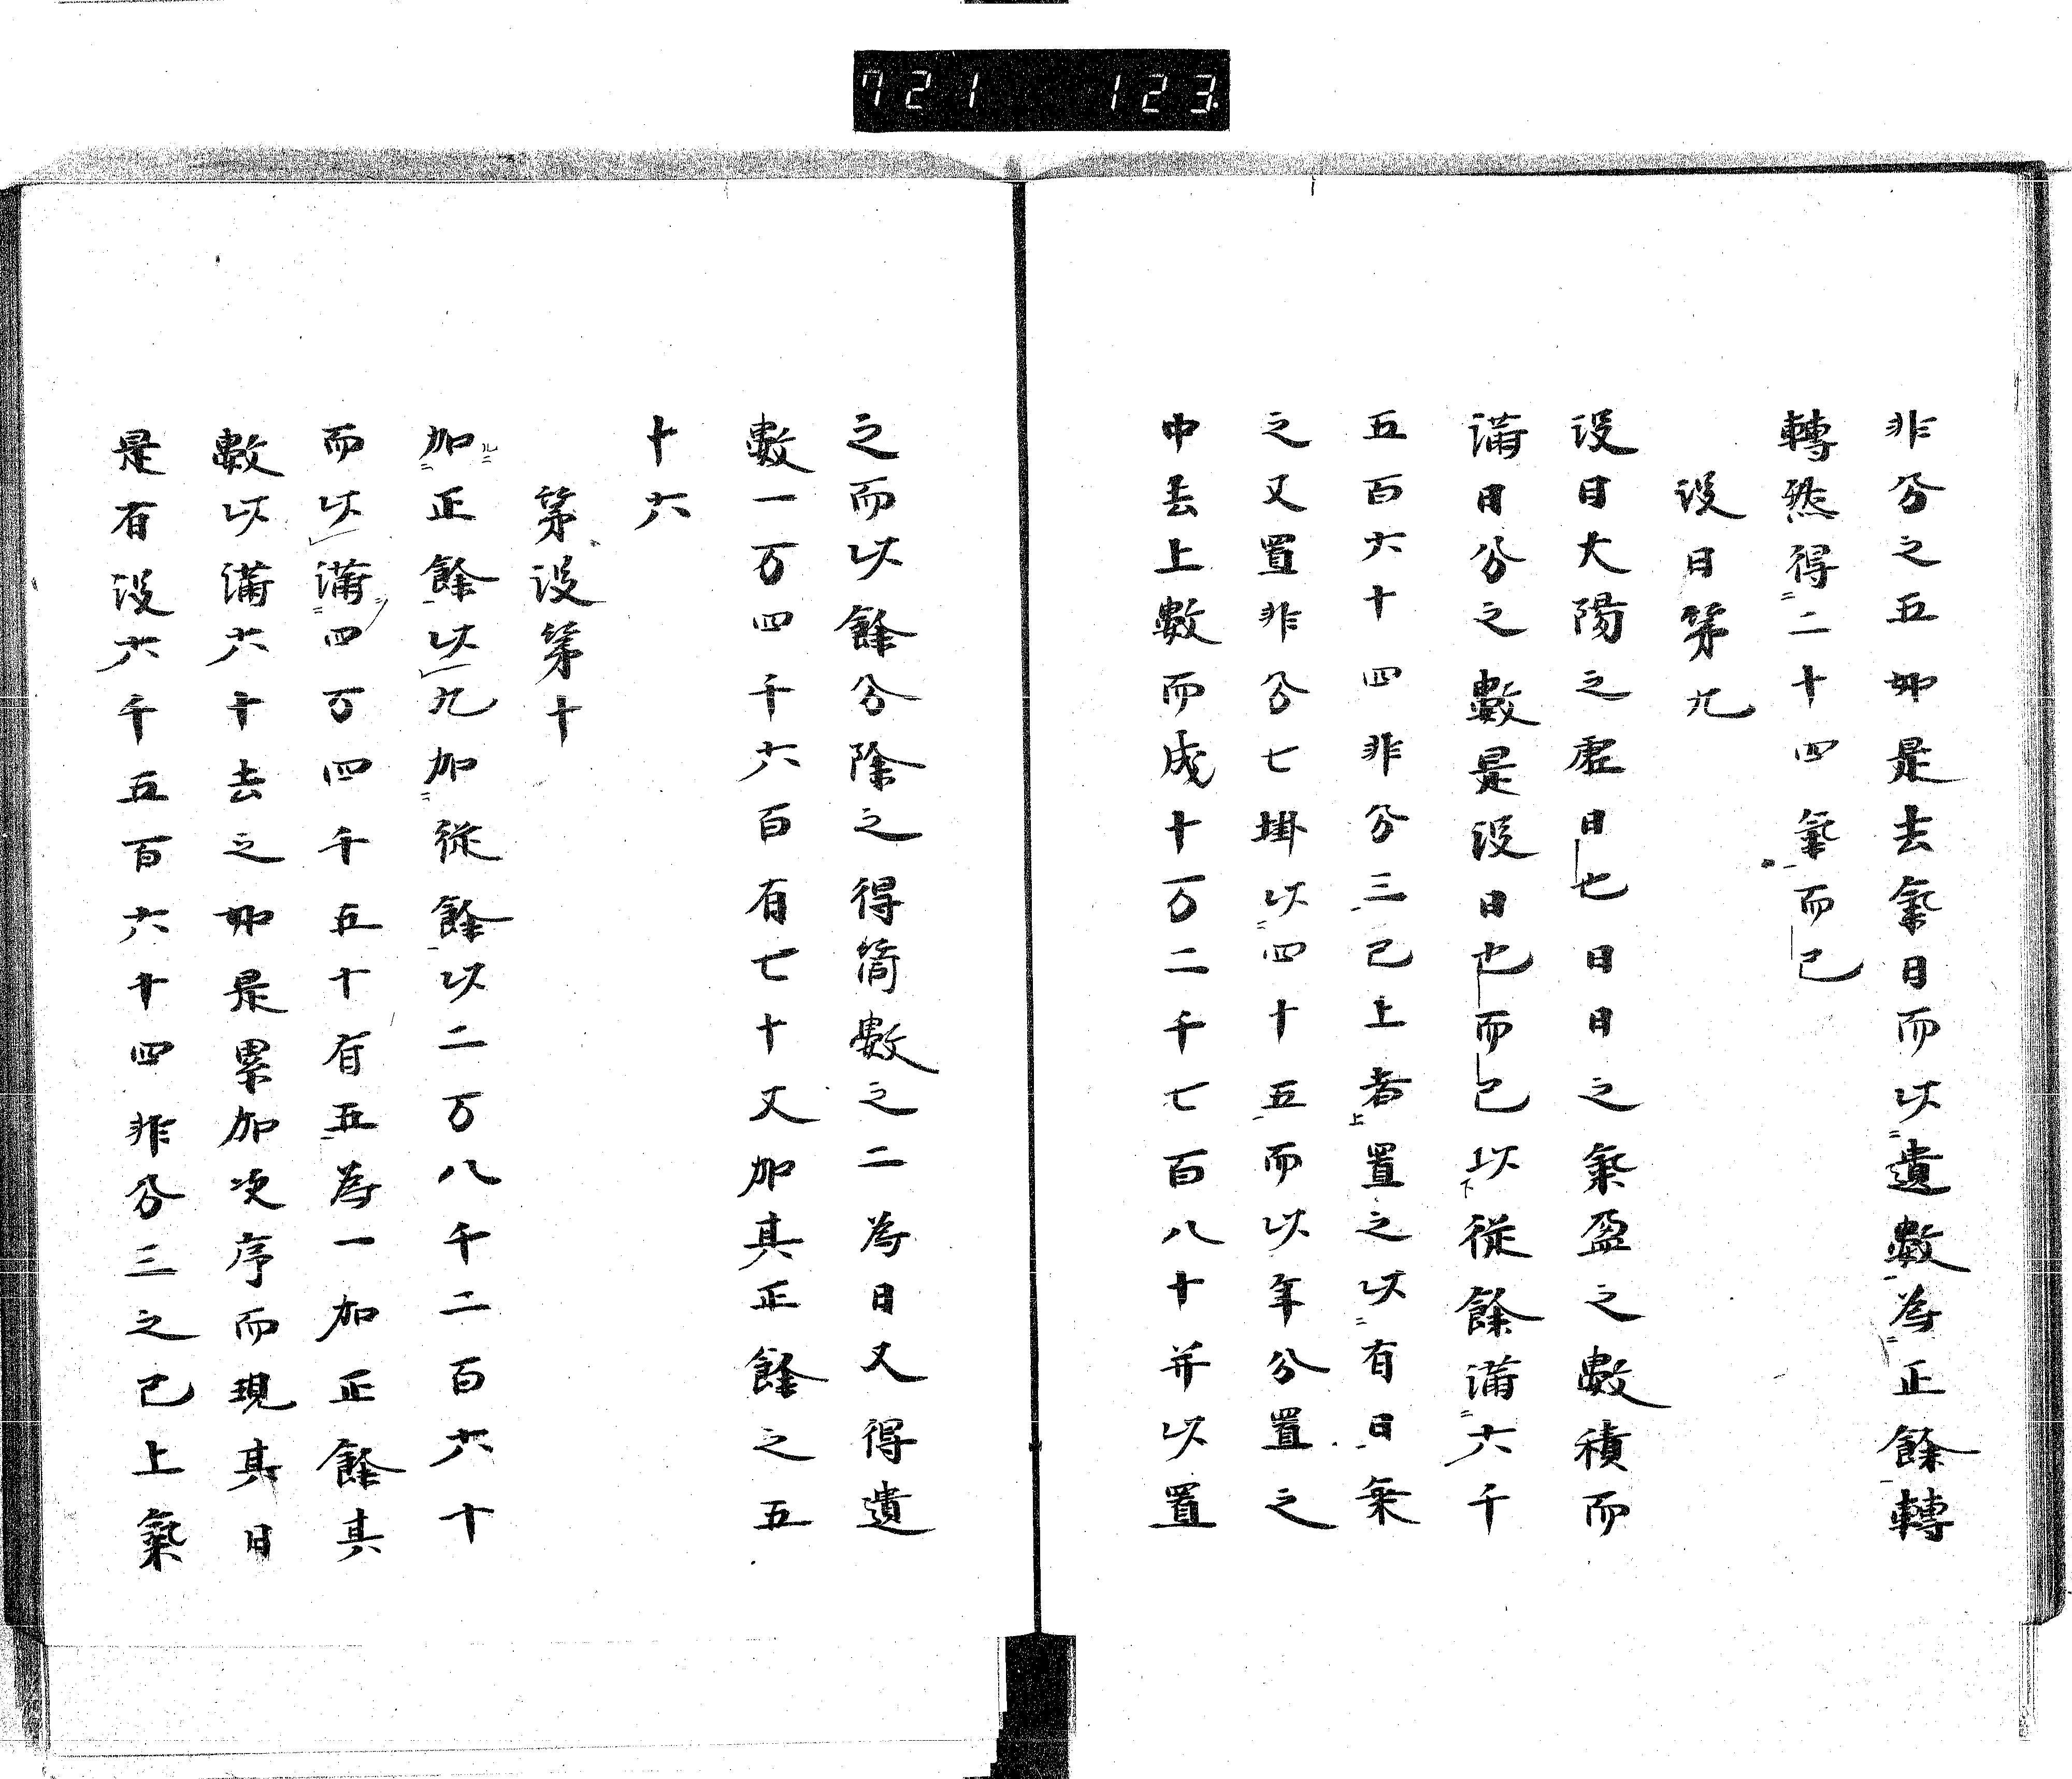 721 123
非分之五如是去氣日而以遺數為正餘轉
轉然得二十四氣而已
没日第九
没日大陽之虚日也日日之氣盈之數積而
満日分之數是没日也而已以従餘満六千
五百六十四非分三已上者置之以有日乗
之又置非分七掛以四十五而以年分置之
中去上數而成十万二千七百八十并以置
之而以餘分除之得箇數之二為日又得遺
數一万四千六百有七十又加其正餘之五
十六
第没第十
加正餘以九加従餘以二万八千二百六十
而以満四万四千五十有五為一加正餘其
數以満六十去之如是累加次序而現其日
是有没六千五百六十四非分三之已上氣